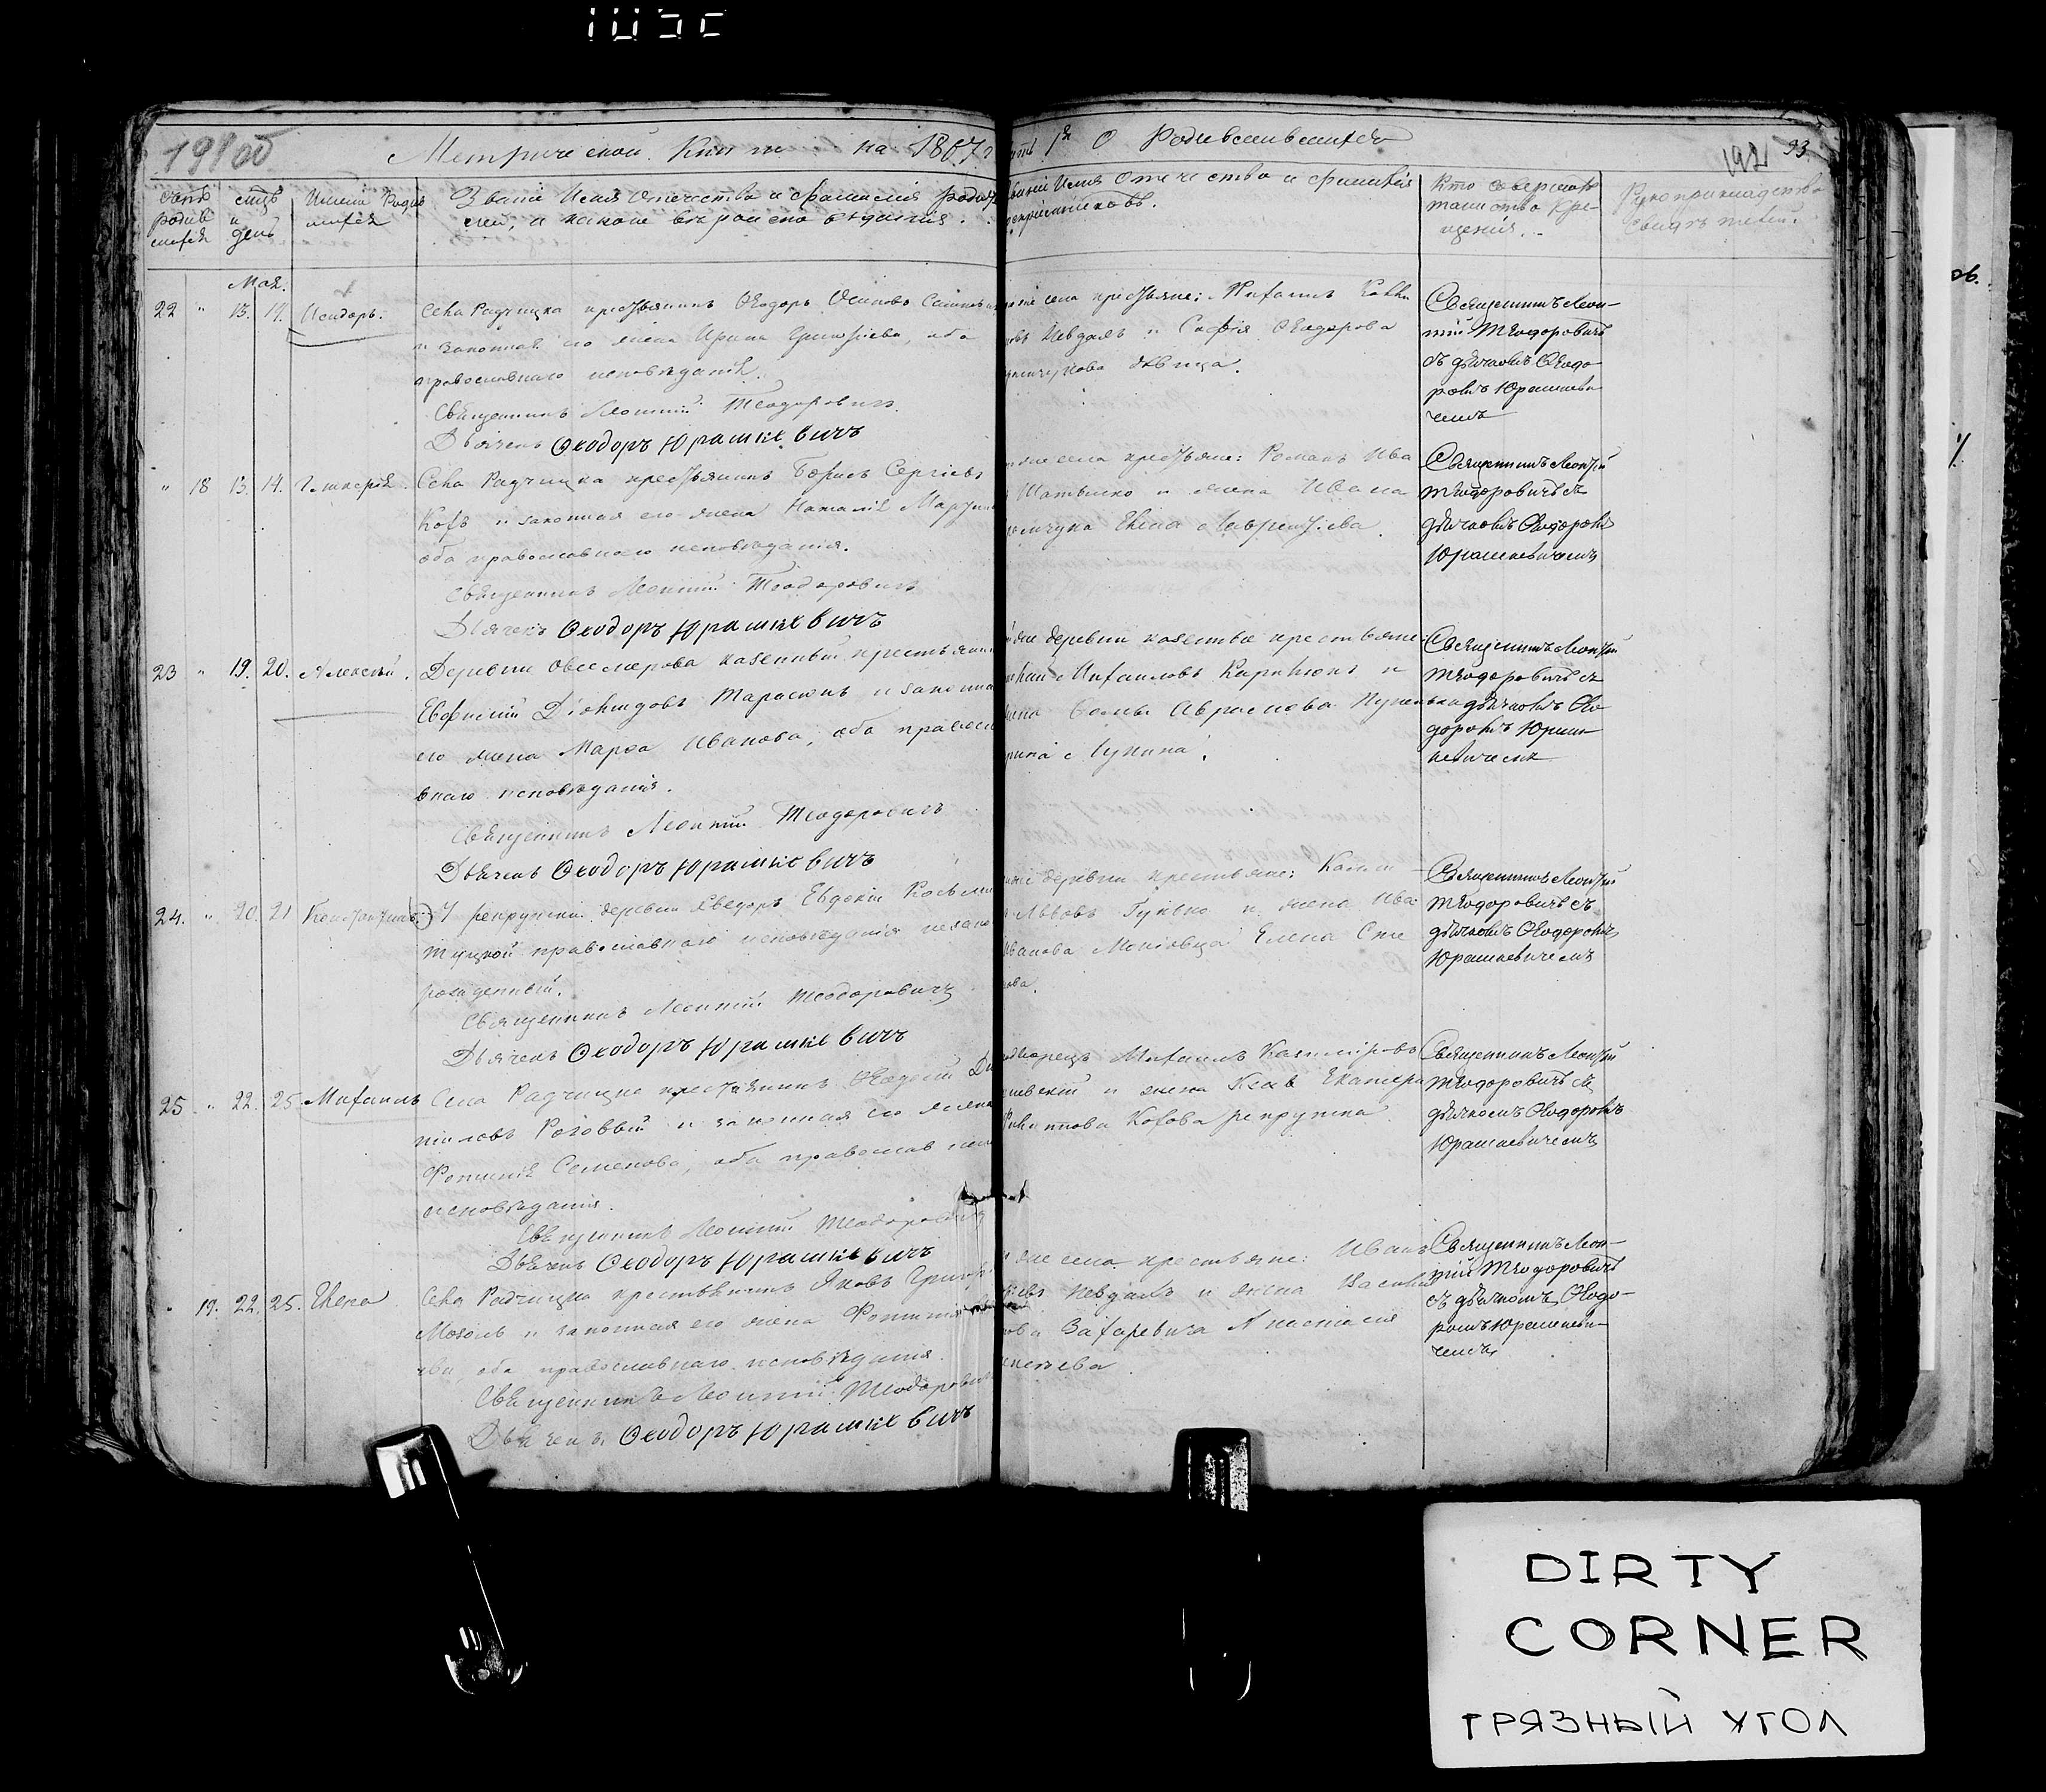 191 об
Метрической Книги на 1867 г
часть 1я О Родившихся
192 93.
счетъ родившихся
мсцъ и день
Имена Родившихся
Званіе Имя Отечество и фамилія родителей, и какого вѣроисповѣданія.
Званіе Имя Отечество и фамилія воспріемниковъ.
Кто совершалъ таинство крещенія.
Рукоприкладство свидѣтелей.
Мая.
22 " 13. 14. Исидоръ.
Села Радчицка крестьянинъ Ѳеодоръ Осиповъ
и законная его жена Ирина Григорьева, оба
православнаго исповѣданія.
Священникъ Леонтій Теодоровичъ
Дьячекъ Ѳеодоръ Юрашкевичъ
того же села крестьяне: Михаилъ
Невдахъ и Софія Ѳеодорова
дѣвица.
Священникъ Леон-
тій Теодоровичъ
съ дьячкомъ Ѳеодо-
ромъ Юрашкеви-
чемъ
" 18 13. 14. Гликерія.
Села Радчицка крестьянинъ Борисъ Сергіевъ
Кохъ и законная его жена Наталія
оба православнаго исповѣданія.
Священникъ Леонтій Теодоровичъ
Дьячекъ Ѳеодоръ Юрашкевичъ
того же села крестьяне: Романъ Ива
и жена Ивана
Елена Лаврентіева.
Священникъ Леонтій
Теодоровичъ съ
дьячкомъ Ѳеодоромъ
Юрашкевичемъ
23 " 19. 20. Алексѣй.
Деревни Овсемерова казенный крестьянинъ
Евфимій Тарасюкъ и законная
его жена Марѳа Иванова, оба правосла
внаго исповѣданія.
Священникъ Леонтій Теодоровичъ
Дьячекъ Ѳеодоръ Юрашкевичъ
той же деревни казенные крестьяне
Михаиловъ и
жена Аврамова
Лукина.
Священникъ Леонтій
Теодоровичъ съ
дьячкомъ Ѳео
доромъ Юраш
кевичемъ
24. " 20. 21 Константинъ.
У рекрутки деревни Евдокіи Косьми
православнаго исповѣданія незакон
рожденный.
Священникъ Леонтій Теодоровичъ
Дьячекъ Ѳеодоръ Юрашкевичъ
деревни крестьяне:
Львовъ Гунько и жена Ива
Иванова Елена Сте
нова.
Священникъ Леонтій
Теодоровичъ съ
дьячкомъ Ѳеодоромъ
Юрашкевичемъ
25 " 22. 25. Михаилъ
Села Радчицка крестьянинъ Ѳеодосій Да
ніиловъ Роговый и законная его жена
Фотинія Семенова, оба православнаго
исповѣданія.
Священникъ Леонтій Теодоровичъ
Дьячекъ Ѳеодоръ Юрашкевичъ
Михаилъ Казиміровъ
и жена Екатери
Филиппова Кохова рекрутка
Священникъ Леонтій
Теодоровичъ съ
дьячкомъ Ѳеодоромъ
Юрашкевичемъ
" 19. 22. 25. Елена
Села Радчицка крестьянинъ Яковъ Григорь
Мозоль и законная его жена Фотинія
ева, оба православнаго исповѣданія.
Священникъ Леонтій Теодоровичъ
Дьячекъ Ѳеодоръ Юрашкевичъ
того же села крестьяне: Иванъ
Невдахъ и жена Василія
Захаревича Анастасія
Священникъ Леон-
тій Теодоровичъ
съ дьячкомъ Ѳеодо-
ромъ Юрашкеви-
чемъ
DIRTY
CORNER
ГРЯЗНЫЙ УГОЛ